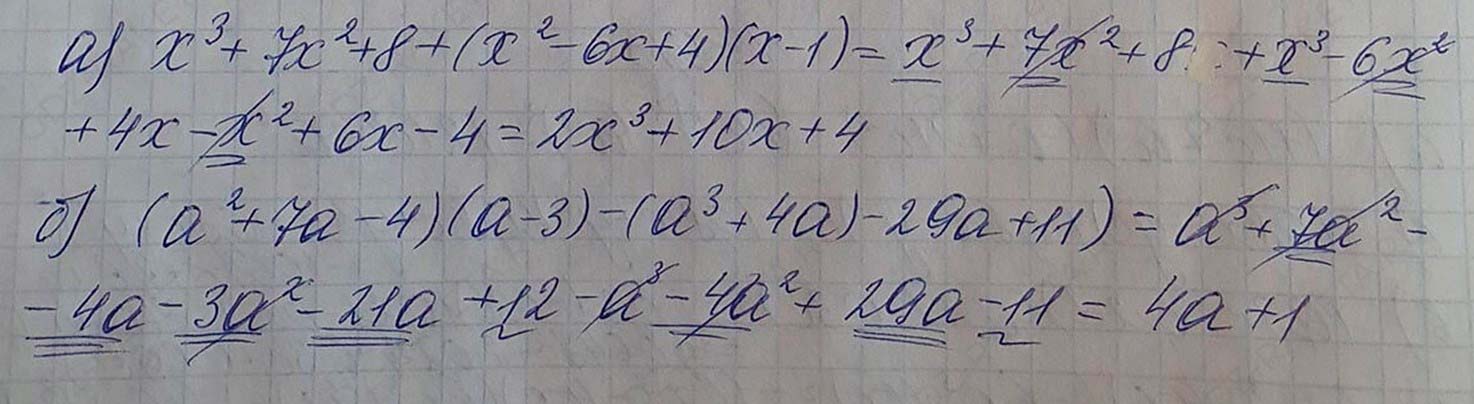 а) x³ + 7x² + 8 + (x² - 6x + 4)(x - 1) = x³ + 7x² + 8 + x³ - 6x²
+ 4x - x² + 6x - 4 = 2x³ + 10x + 4
б) (a² + 7a - 4)(a - 3) - (a³ + 4a) - 29a + 11) = a³ + 7a² -
- 4a - 3a² - 21a + 12 - a³ - 4a² + 29a - 11 = 4a + 1